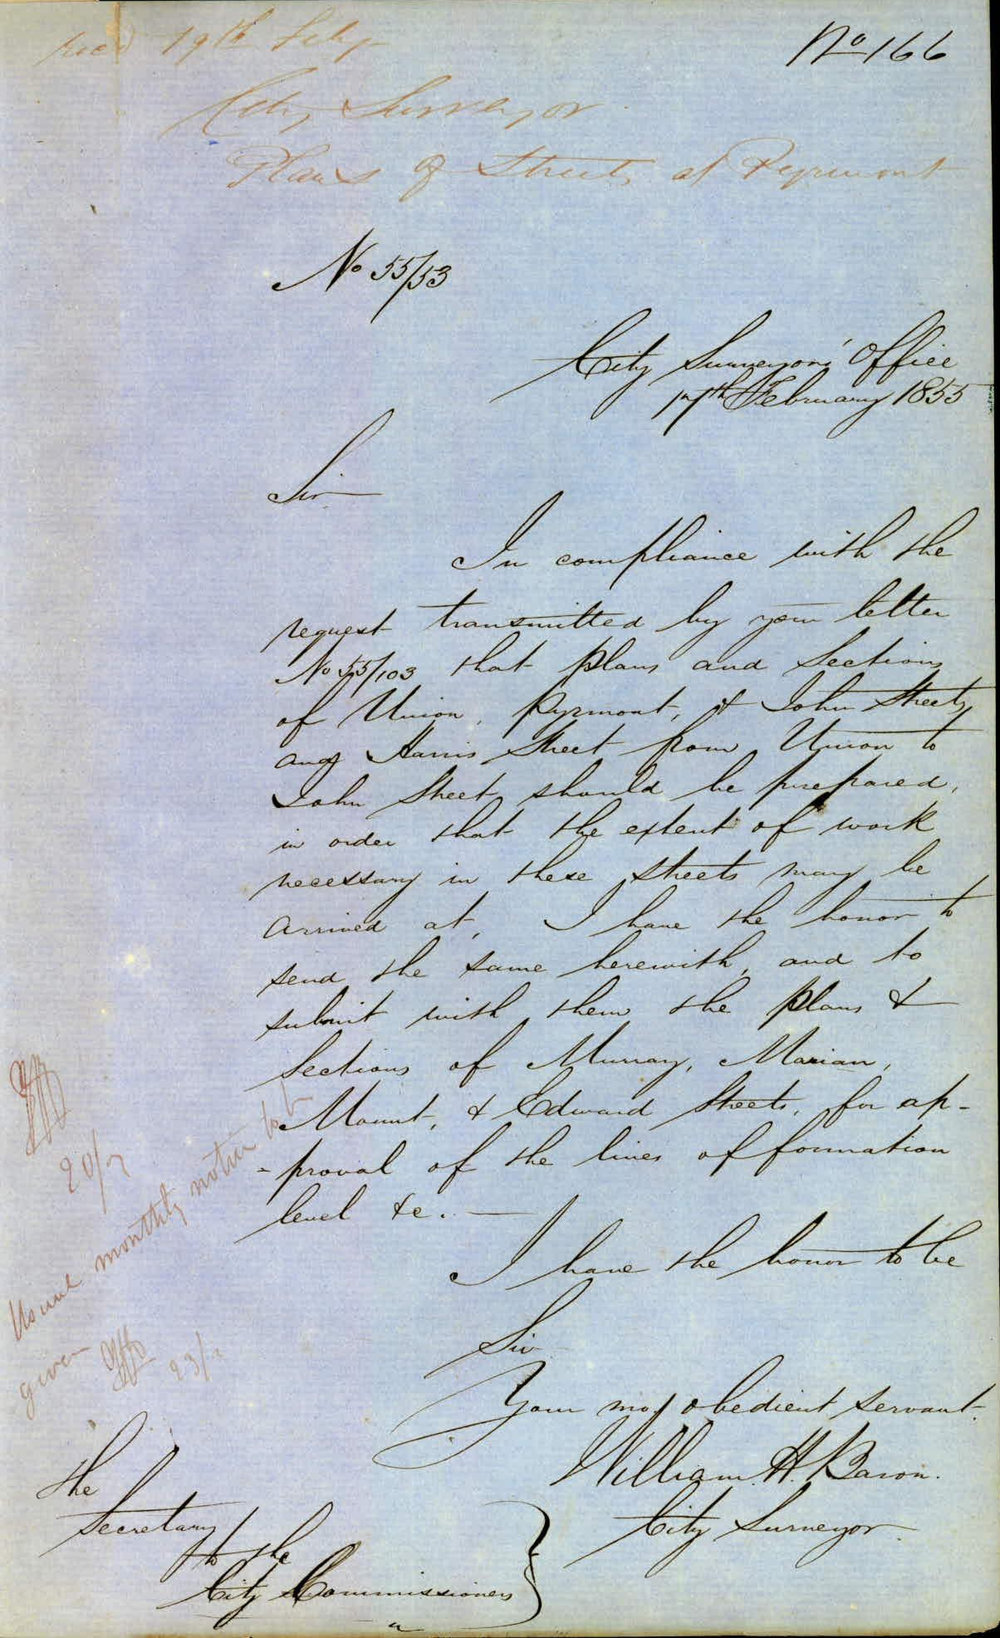 recd 19th Feby
No 166
City Surveyor
Plans of Streets at Pyrmont
No 55/53
City Surveyors' Office
17th February 1855
Sir
In compliance with the
request transmitted by your letter
No 55/103 that plans and Sections
of Union, Pyrmont, & John Streets,
and Harris Street from Union to
John Street, should be prepared,
in order that the extent of work
necessary in these streets may be
arrived at, I have the honor to
send the same herewith, and to
submit with them the plans &
Sections of Murray, Marian,
Mount, & Edward Streets, for ap-
-proval of the lines of formation
level &c. —
I have the honor to be
Sir
Your most obedient servant.
William H. Baron.
City Surveyor.
The
Secretary
to the
City Commissioners
20/2
Usual monthly notice to be
given
23/2